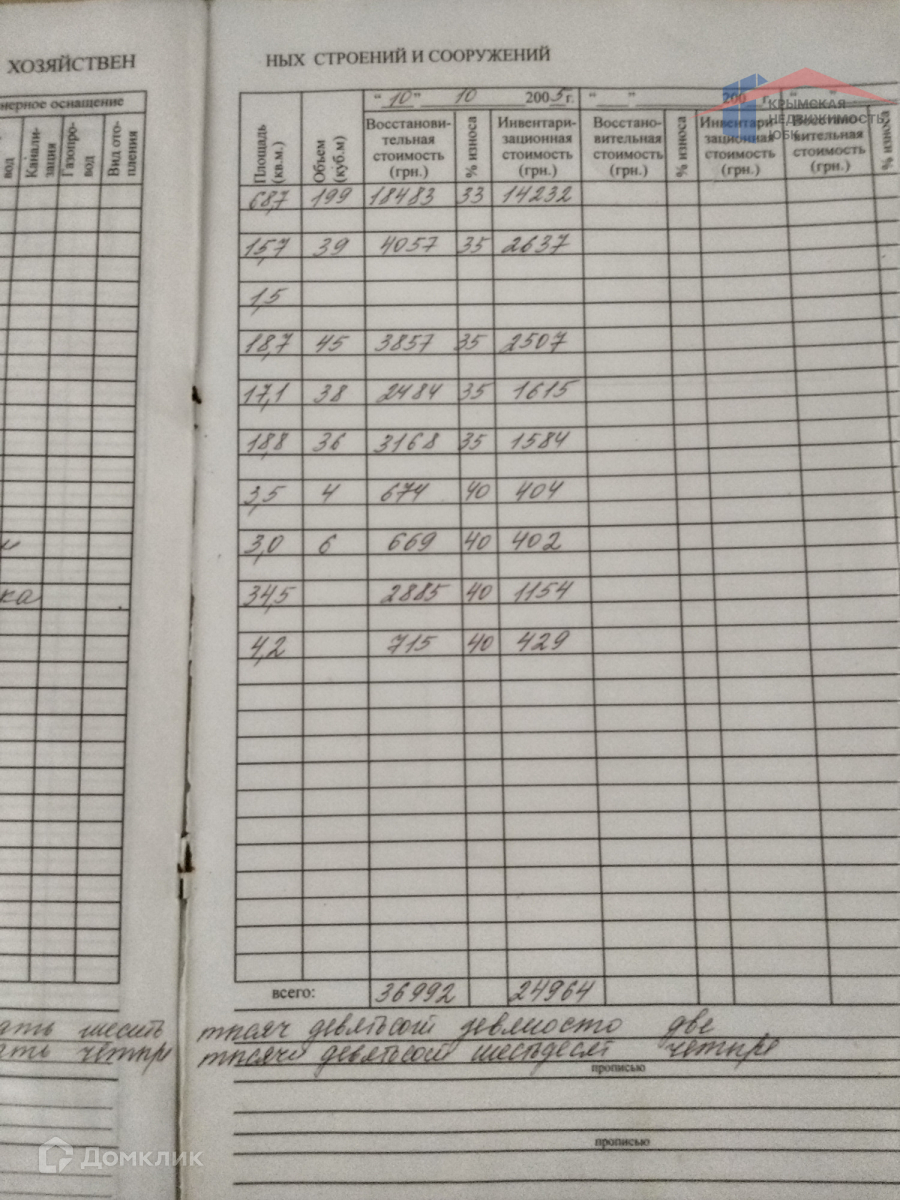 ХОЗЯЙСТВЕН
НЫХ СТРОЕНИЙ И СООРУЖЕНИЙ
КРЫМСКАЯ
НЕДВИЖИМОСТЬ
ЮБК
нерное оснащение
вод
Канали-
зация
Газопро-
вод
Вид ото-
пления
Площадь
(кв.м.)
Объем
(куб.м)
"10" 10 2005г.
Восстанови-
тельная
стоимость
(грн.)
% износа
Инвентари-
зационная
стоимость
(грн.)
"___" ______ 200_ г.
Восстано-
вительная
стоимость
(грн.)
% износа
Инвентари-
зационная
стоимость
(грн.)
Восстано-
вительная
стоимость
(грн.)
% износа
68,7 199 18483 33 14232
15,7 39 4057 35 2637
1,5
18,7 45 3857 35 2507
17,1 38 2484 35 1615
18,8 36 3168 35 1584
3,5 4 674 40 404
3,0 6 669 40 402
ка 34,5 2885 40 1154
4,2 715 40 429
всего: 36992 24964
ать шесть тысяч девятьсот девяносто две
ать четыре тысячи девятьсот шестьдесят четыре
прописью
прописью
Домклик